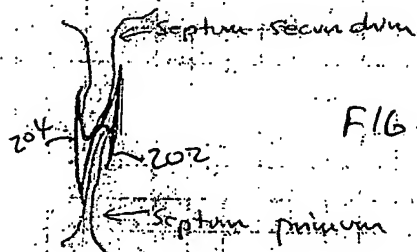 septum secundum
204
FIG.
202
septum primum